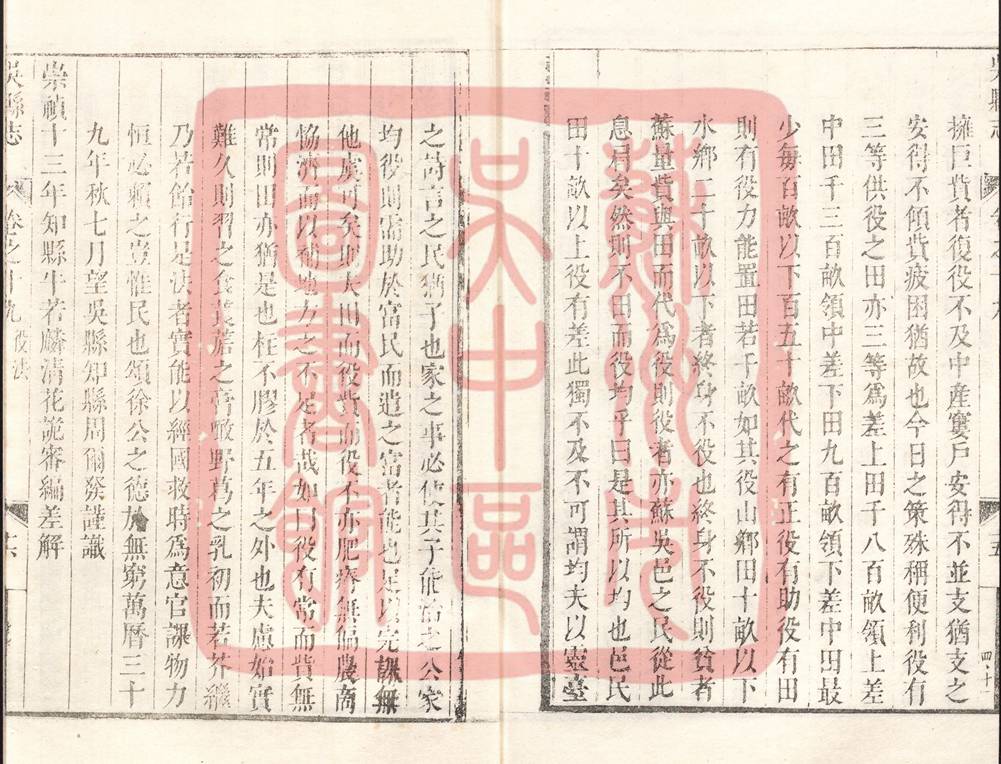 吳縣志
擁巨貲者復役不及中產窶戶安得不並支猶支之
安得不傾貲疲困猶故也今日之策殊稱便利役有
三等供役之田亦三等爲差上田千八百畝領上差
中田千三百畝領中差下田九百畝領下差中田最
少每百畝以下百五十畝代之有正役有助役有田
則有役力能置田若干畝如其役山鄉田十畝以下
水鄉二十畝以下者終身不役也終身不役則貧者
蘇量貲與田而代爲役則役者亦蘇吳邑之民從此
息肩矣然則不田而役均乎曰是其所以均也邑民
田十畝以上役有差此獨不及不可謂均夫以靈臺
之詩言之民猶子也家之事必使其子能治之公家
均役則需助於富民而遺之富者能也足以完課無
他虞可矣則大田而役貲而役不亦肥瘠無偏農商
恊濟而以補地力之不足者哉如曰役有常而貲無
常則田亦猶是也柱不膠於五年之外也夫慮始實
難久則習之食蔗澹之膏醊野葛之乳初而若芥繼
乃若飴行是法者實能以經國救時爲意官課物力
恒必賴之豈惟民也頌徐公之德於無窮萬曆三十
九年秋七月望吳縣知縣周爾發謹識
崇禎十三年知縣牛若麟清花詭審編差解
吳縣志
卷之十九
役法
十六
蘇州市
吳中區
圖書館